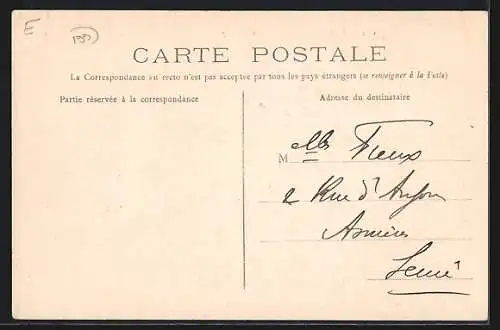 E
CARTE POSTALE
La Correspondance au recto n'est pas acceptée par tous les pays étrangers (se renseigner à la Poste)
Partie réservée à la correspondance
Adresse du destinataire
M elles Fieux
2 Rue d'Anjou
Asnières
Seine